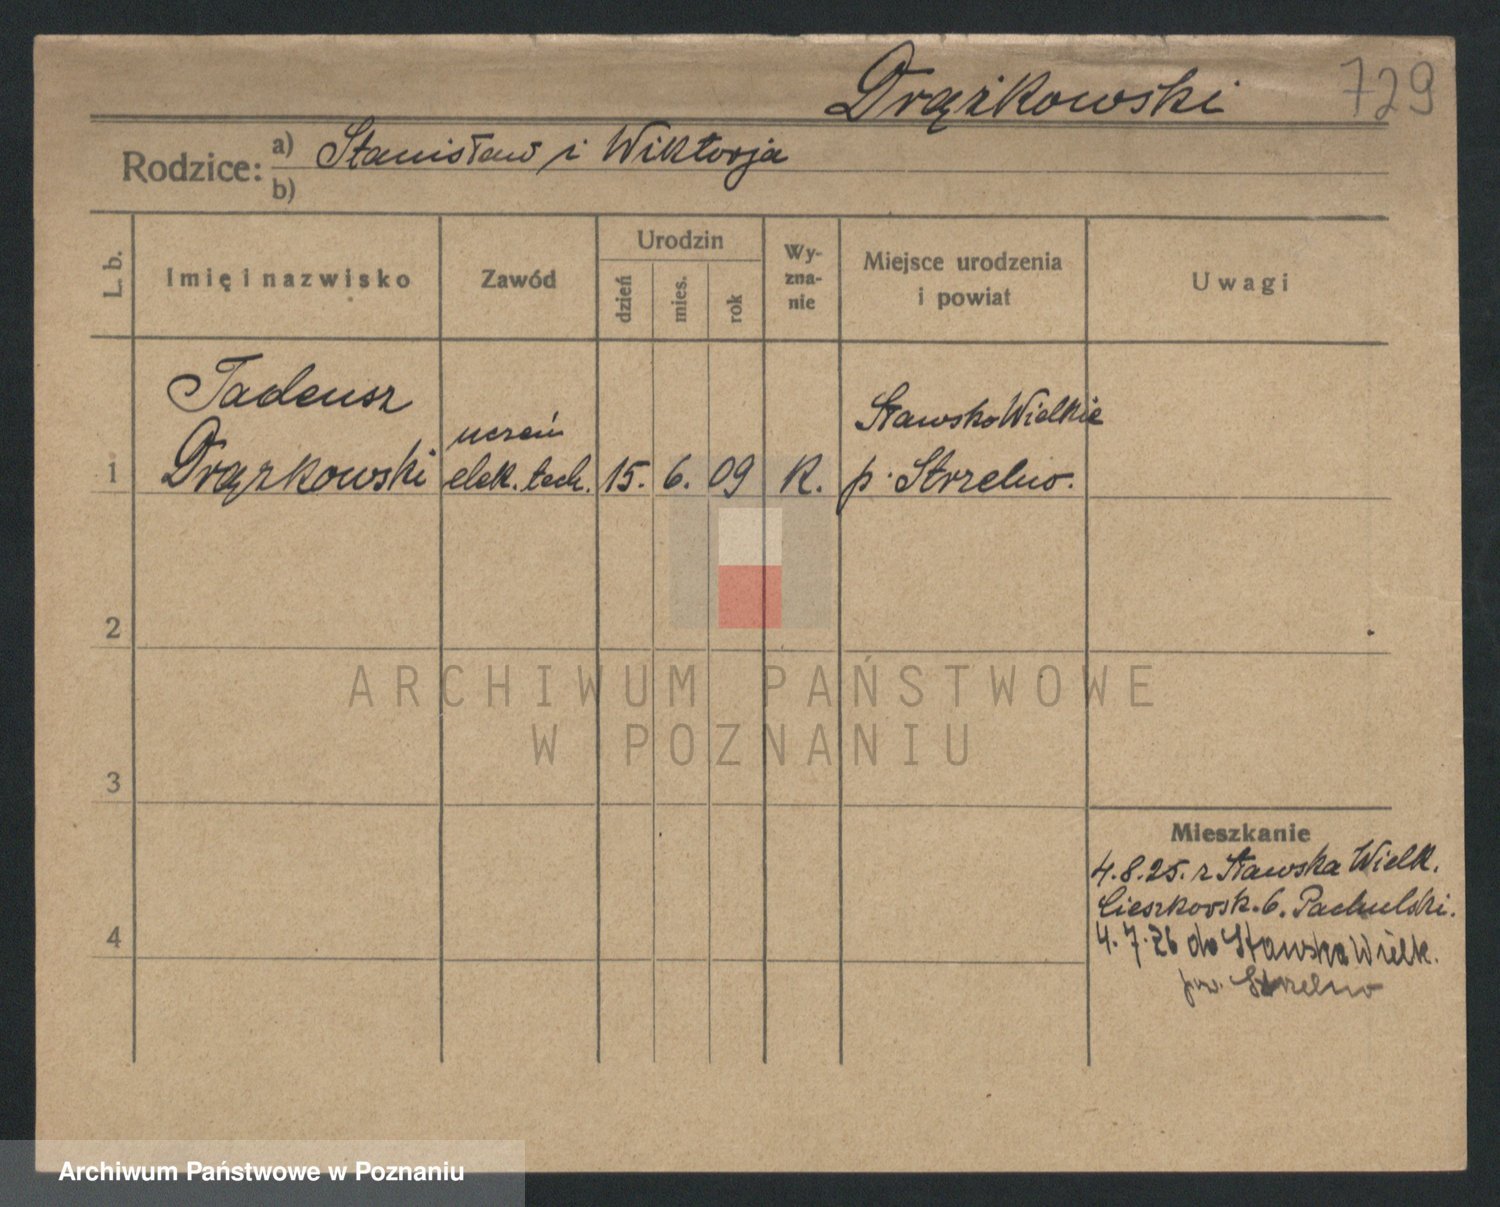 Drążkowski 729
Rodzice: a) Stanisław i Wiktorja
b)
L. b.
Imię i nazwisko
Zawód
Urodzin
dzień
mies.
rok
Wy-
zna-
nie
Miejsce urodzenia
i powiat
Uwagi
Tadeusz
uczeń
Stawsko Wielkie
1 Drążkowski elek. tech. 15. 6. 09 K. p. Strzelno.
2
3
4
Mieszkanie
4.8.25. z Stawska Wielk.
Cieszkowsk. 6. Pachulski.
4.7.26 do Stawska Wielk.
pow. Strzelno
ARCHIWUM PAŃSTWOWE
W POZNANIU
Archiwum Państwowe w Poznaniu